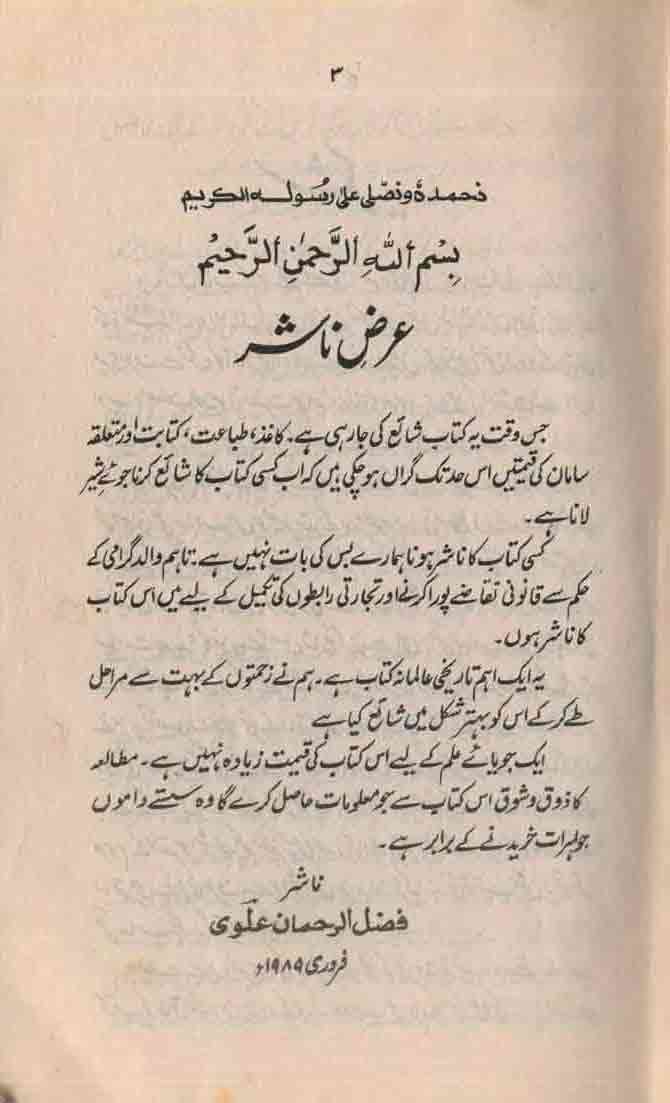 ۳
نحمدہٗ ونصلّی علیٰ رسولہ الکریم
بِسْمِ اللہِ الرَّحمٰنِ الرَّحِیْمِ
عرضِ ناشر
جس وقت یہ کتاب شائع کی جا رہی ہے۔ کاغذ، طباعت، کتابت اور متعلقہ
سامان کی قیمتیں اس حد تک گراں ہو چکی ہیں کہ اب کسی کتاب کا شائع کرنا جوئے شیر
لانا ہے۔
کسی کتاب کا ناشر ہونا ہمارے بس کی بات نہیں ہے۔ تاہم والد گرامی کے
حکم سے قانونی تقاضے پورا کرنے اور تجارتی رابطوں کی تکمیل کے لیے میں اس کتاب
کا ناشر ہوں۔
یہ ایک اہم تاریخی عالمانہ کتاب ہے۔ ہم نے زحمتوں کے بہت سے مراحل
طے کر کے اس کو بہتر شکل میں شائع کیا ہے
ایک جویائے علم کے لیے اس کتاب کی قیمت زیادہ نہیں ہے۔ مطالعہ
کا ذوق و شوق اس کتاب سے جو معلومات حاصل کرے گا وہ سستے داموں
جواہرات خریدنے کے برابر ہے۔
ناشر
فضل الرحمان علوی
فروری ۱۹۸۹ء